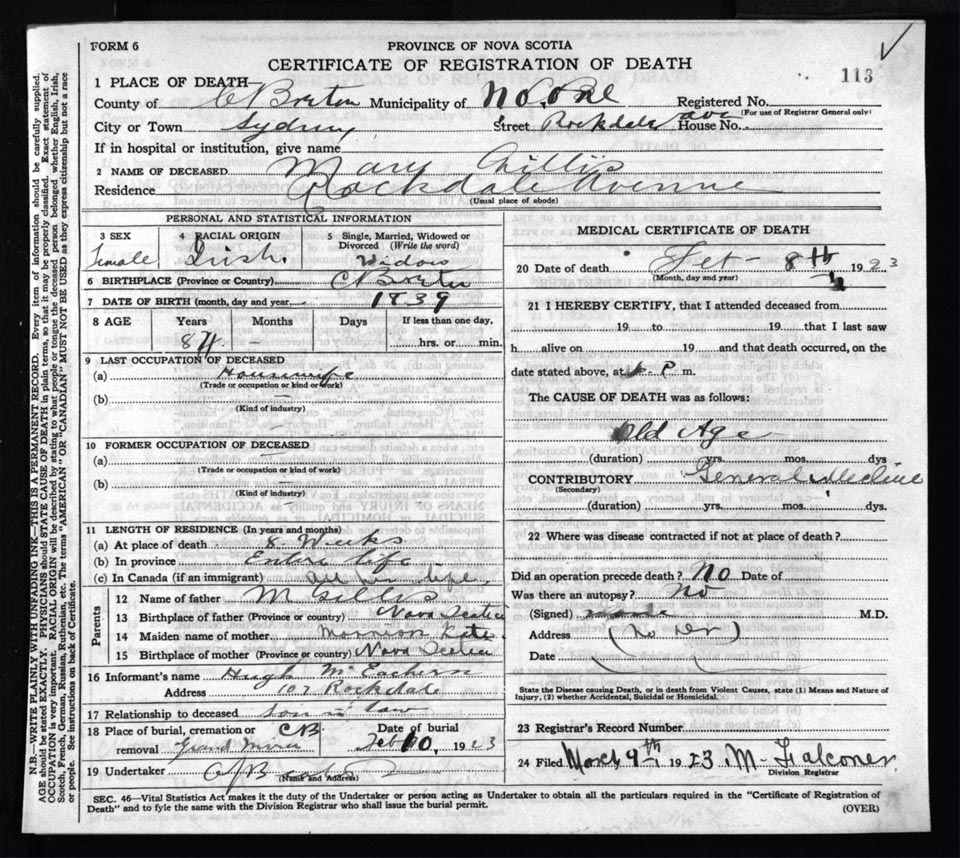 FORM 6
PROVINCE OF NOVA SCOTIA
CERTIFICATE OF REGISTRATION OF DEATH
113
1 PLACE OF DEATH
County of C Breton Municipality of No. One Registered No.
(For use of Registrar General only)
City or Town Sydney Street Rockdale Ave House No.
If in hospital or institution, give name
2 NAME OF DECEASED Mary Gillis
Residence Rockdale Avenue
(Usual place of abode)
PERSONAL AND STATISTICAL INFORMATION
3 SEX Female
4 RACIAL ORIGIN Irish
5 Single, Married, Widowed or Divorced (Write the word) Widow
6 BIRTHPLACE (Province or Country) C Breton
7 DATE OF BIRTH (month, day and year) 1839
8 AGE Years Months Days If less than one day,
84 hrs. or min.
9 LAST OCCUPATION OF DECEASED
(a) Housewife
(Trade or occupation or kind of work)
(b)
(Kind of industry)
10 FORMER OCCUPATION OF DECEASED
(a)
(Trade or occupation or kind of work)
(b)
(Kind of industry)
11 LENGTH OF RESIDENCE (In years and months)
(a) At place of death 8 Weeks
(b) In province Entire life
(c) In Canada (if an immigrant) All her life
Parents
12 Name of father M Gillis
13 Birthplace of father (Province or country) Nova Scotia
14 Maiden name of mother Morrison Kate
15 Birthplace of mother (Province or country) Nova Scotia
16 Informant's name Hugh McEachern
Address 107 Rockdale
17 Relationship to deceased son in law
18 Place of burial, cremation or removal CB Grand Mira
Date of burial Feb 10, 1923
19 Undertaker
(Name and Address)
MEDICAL CERTIFICATE OF DEATH
20 Date of death Feb 8th 1923
(Month, day and year)
21 I HEREBY CERTIFY, that I attended deceased from
19 to 19 that I last saw
h alive on 19 and that death occurred, on the
date stated above, at P m.
The CAUSE OF DEATH was as follows:
Old Age
(duration) yrs. mos. dys
CONTRIBUTORY General decline
(Secondary)
(duration) yrs. mos. dys.
22 Where was disease contracted if not at place of death?
Did an operation precede death? No Date of
Was there an autopsy? No
(Signed) M.D.
Address (No Dr)
Date
State the Disease causing Death, or in death from Violent Causes, state (1) Means and Nature of Injury, (2) whether Accidental, Suicidal or Homicidal.
23 Registrar's Record Number
24 Filed March 9th 1923 M. Falconer
Division Registrar
SEC. 46—Vital Statistics Act makes it the duty of the Undertaker or person acting as Undertaker to obtain all the particulars required in the "Certificate of Registration of
Death" and to fyle the same with the Division Registrar who shall issue the burial permit.
(OVER)
N.B.—WRITE PLAINLY WITH UNFADING INK—THIS IS A PERMANENT RECORD. Every item of information should be carefully supplied.
AGE should be stated EXACTLY. PHYSICIANS should STATE CAUSE OF DEATH in plain terms, so that it may be properly classified. Exact statement of
OCCUPATION is very important. RACIAL ORIGIN will be described by stating to what people or tongue the deceased person belonged whether English, Irish,
Scotch, French, German, Russian, Ruthenian, etc. The terms "AMERICAN" OR "CANADIAN" MUST NOT BE USED as they express citizenship but not a race
or people. See instructions on back of Certificate.